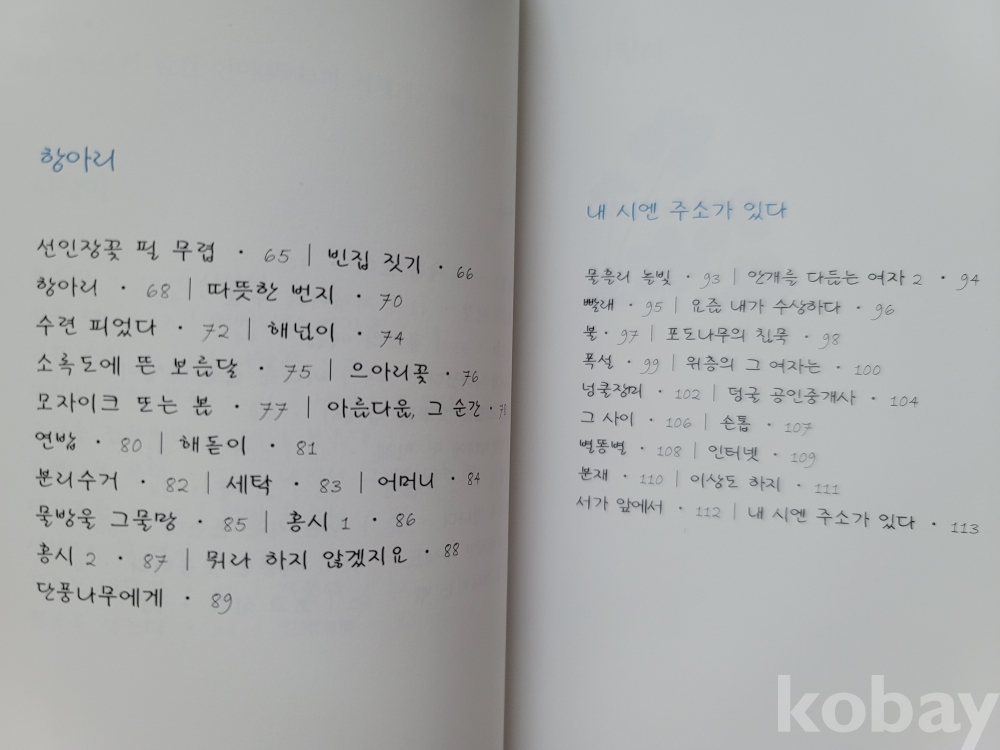 항아리
선인장꽃 필 무렵 · 65 | 빈집 짓기 · 66
항아리 · 68 | 따뜻한 번지 · 70
수련 피었다 · 72 | 해넘이 · 74
소록도에 뜬 보름달 · 75 | 으아리꽃 · 76
모자이크 또는 봄 · 77 | 아름다운, 그 순간 ·
연밥 · 80 | 해돋이 · 81
분리수거 · 82 | 세탁 · 83 | 어머니 · 84
물방울 그물망 · 85 | 홍시 1 · 86
홍시 2 · 87 | 뭐라 하지 않겠지요 · 88
단풍나무에게 · 89
내 시엔 주소가 있다
물흘리 놀빛 · 93 | 안개를 다듬는 여자 2 · 94
빨래 · 95 | 요즘 내가 수상하다 · 96
불 · 97 | 포도나무의 침묵 · 98
폭설 · 99 | 위층의 그 여자는 · 100
넝쿨장미 · 102 | 덩굴 공인중개사 · 104
그 사이 · 106 | 손톱 · 107
별똥별 · 108 | 인터넷 · 109
분재 · 110 | 이상도 하지 · 111
서가 앞에서 · 112 | 내 시엔 주소가 있다 · 113
kobay